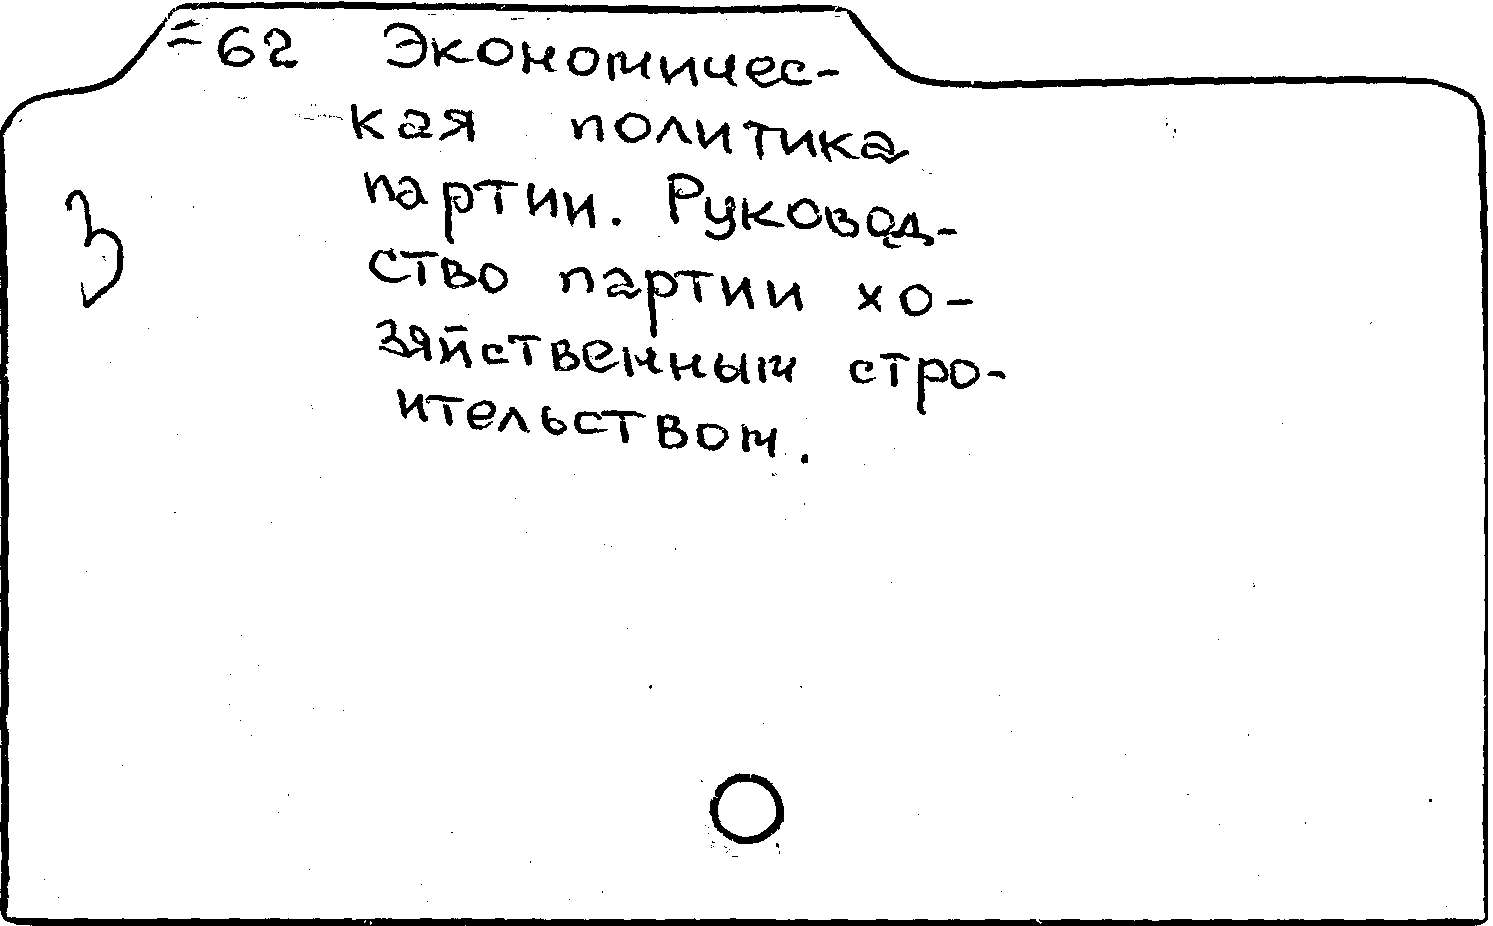 =62 Экономичес-
кая политика
партии. Руковод-
ство партии хо-
зяйственным стро-
ительством.
З